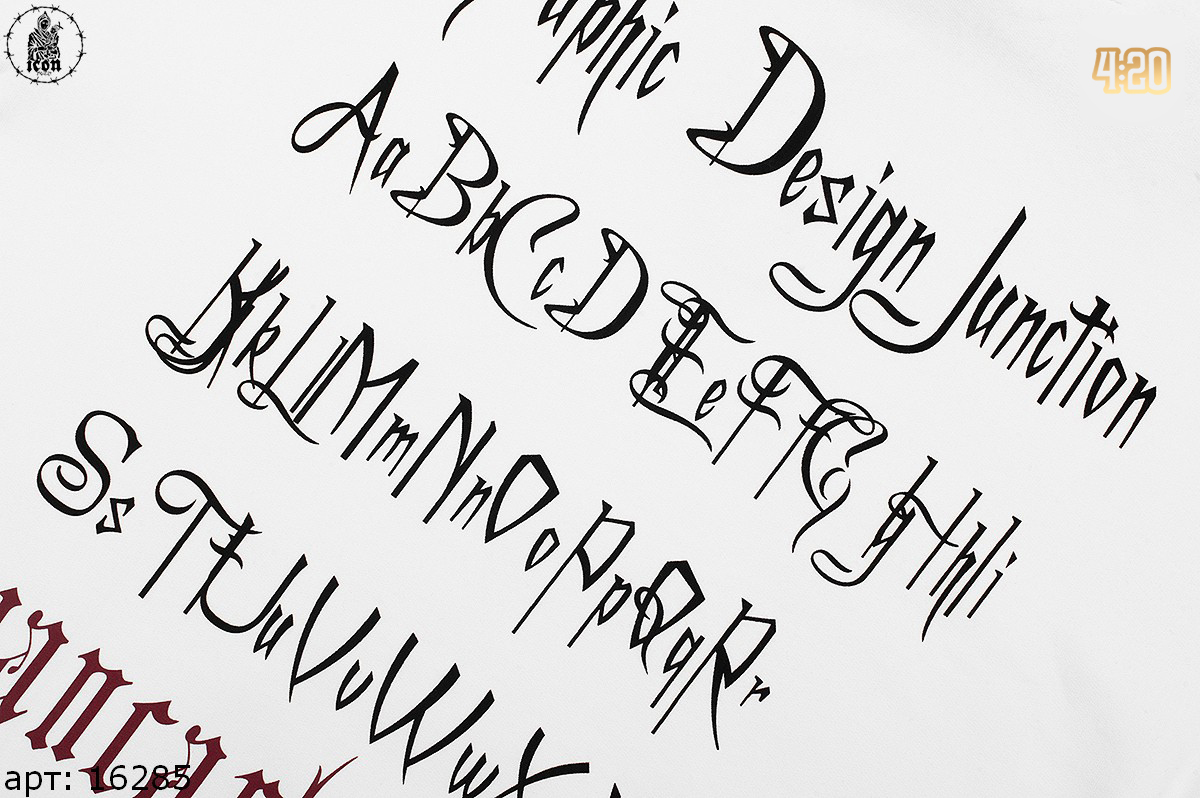 icon
4:20
aphic Design Junction
AaBbCcDEeFfGgHhIi
KkLlMmNnOoPpQqRr
SsTtUuVvWwX
anca
арт: 16285